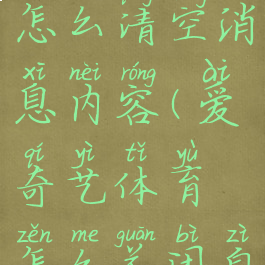 怎么清空消
xī nèi róng ài
息内容(爱
qí yì tǐ yù
奇艺体育
zěn me guān bì zì
怎么关闭自